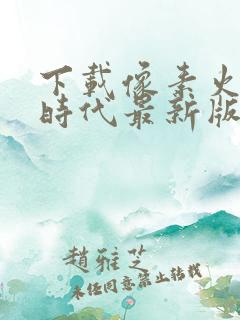 下載像素火
時代最新版
趙雅芝
未經同意禁止轉載